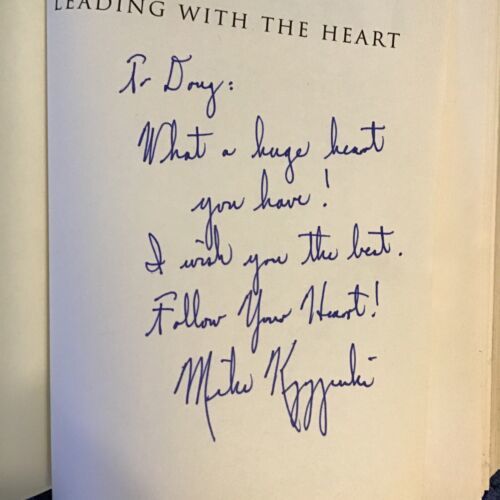 LEADING WITH THE HEART
To Doug:
What a huge heart
you have!
I wish you the best.
Follow Your Heart!
Mike Krzyzewski